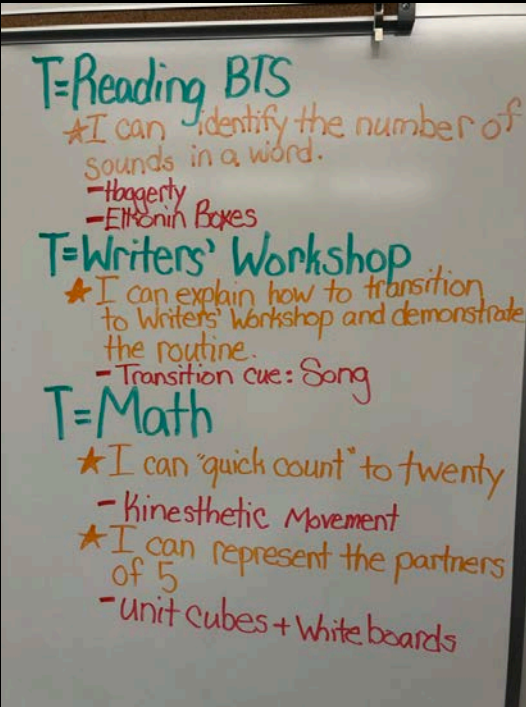 T=Reading BTS
★I can identify the number of
sounds in a word.
-Hbagerty
-Elkonin Boxes
T=Writers' Workshop
★I can explain how to transition
to Writers' Workshop and demonstrate
the routine.
-Transition cue: Song
T=Math
★I can "quick count" to twenty
-Kinesthetic Movement
★I can represent the partners
of 5
-unit cubes + White boards